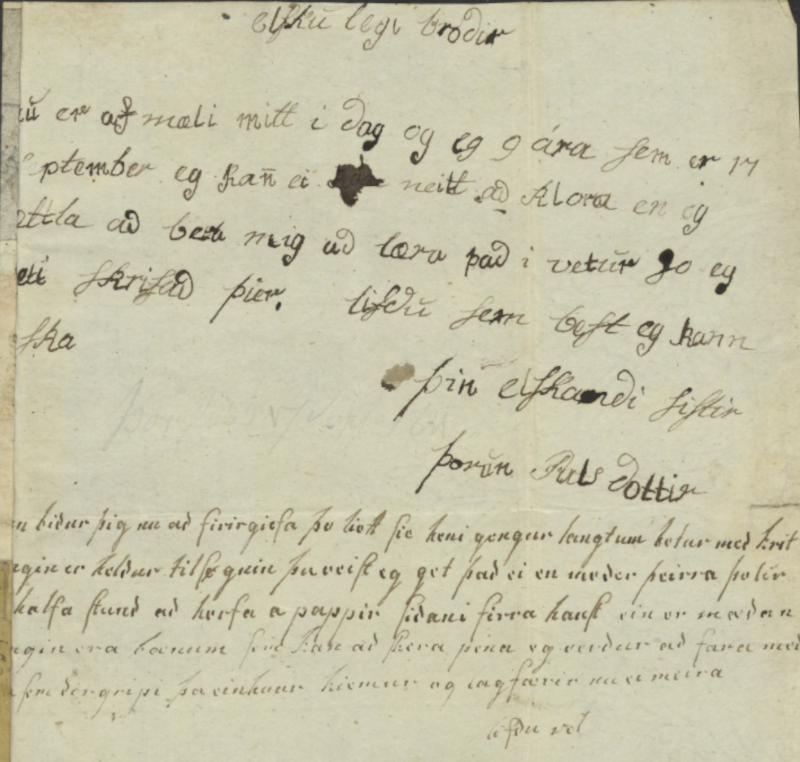 elskulegi brodir
nu er af mæli mitt i dag og eg 9 ára sem er 17
ptember eg kan̄ ei neitt ad klora en eg
ættla ad bera mig ad læra þad i vetur so eg
geti skrifad þier. lifdu sem best eg kann
ska
þin elskandi sistir
þorun Puls dottir
bidur þig nu ad firirgiefa þo liott sie heni gengur langtum betur med krit
ngin er heldur tilsøgnin þu veist eg get þad ei en moder þeirra þolir
halfa stund ad horfa a pappir sidan i firra haust ein er mædan
ngin er a bænum sem kan ad skera pena eg verdur ad fara med
sem dorgripi þa einhvur kiemur og lagfærer nu ei meira
lifdu vel